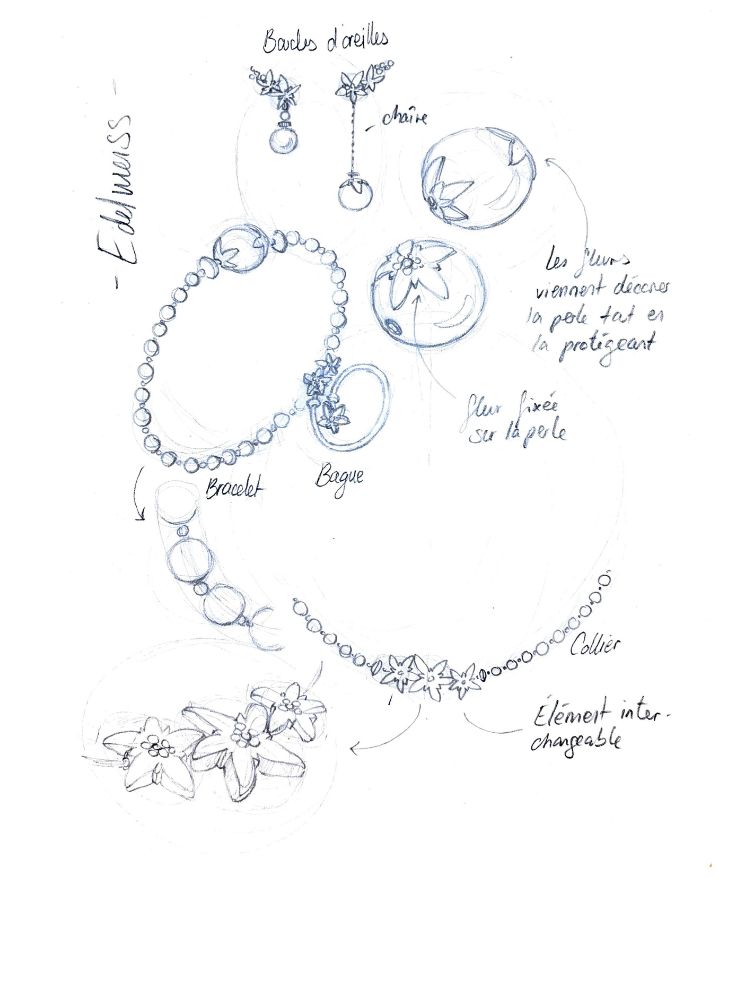 Boucles d'oreilles
chaîne
- Edelweiss -
Les fleurs
viennent décorer
la perle tout en
la protégeant
fleur fixée
sur la perle
Bracelet
Bague
Collier
Élément inter-
changeable